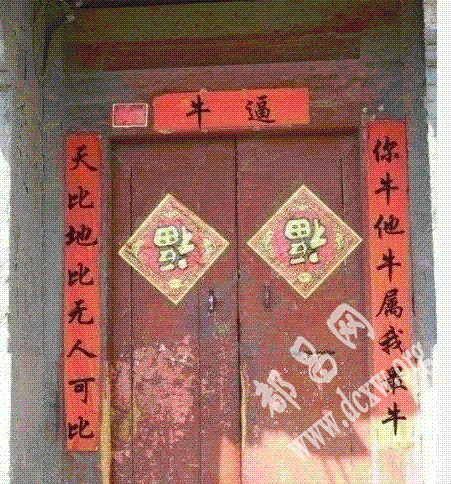 牛逼
你牛他牛属我最牛
天比地比无人可比
福
福
都昌网
www.dcxw.org